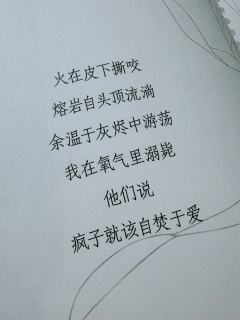 火在皮下撕咬
熔岩自头顶流淌
余温于灰烬中游荡
我在氧气里溺毙
他们说
疯子就该自焚于爱